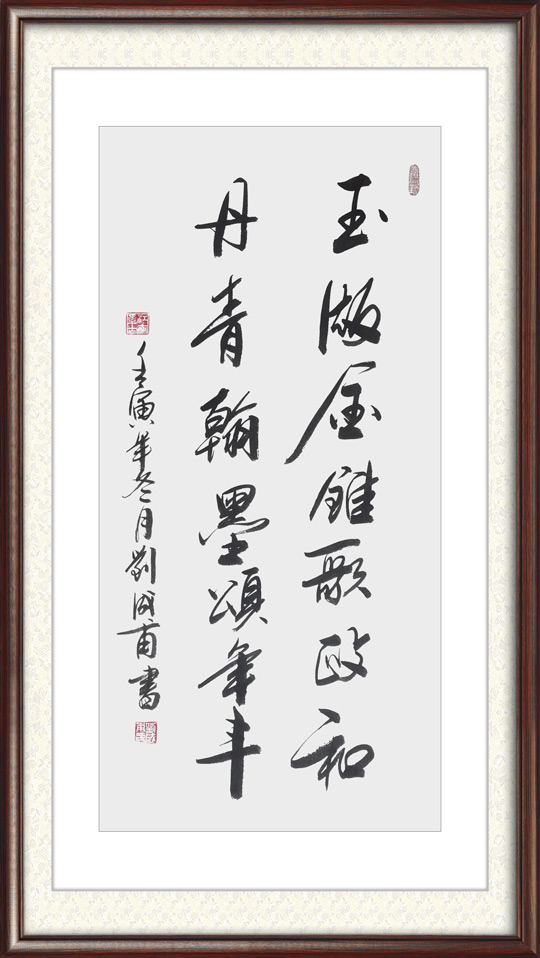 玉版金錐歌政和
丹青翰墨頌年丰
壬寅年冬月劉成甫書